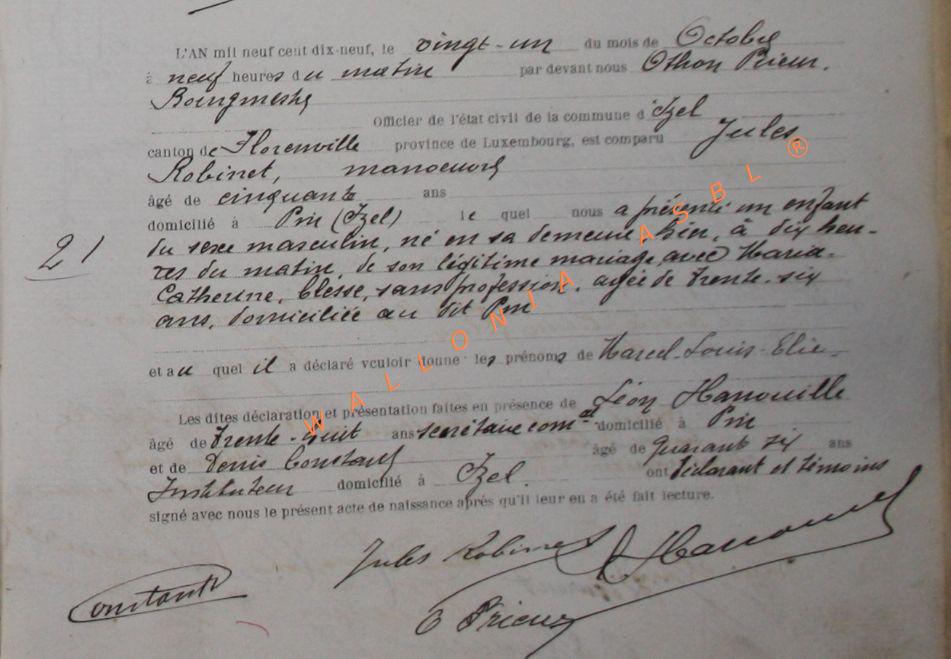 L'AN mil neuf cent dix-neuf, le vingt-un du mois de Octobre
à neuf heures du matin par devant nous Othon Prieur,
Bourgmestre
Officier de l'état civil de la commune d'Izel
canton de Florenville province de Luxembourg, est comparu Jules
Robinet, manoeuvre
âgé de cinquante ans
domicilié à Pin (Izel) lequel nous a présenté un enfant
du sexe masculin, né en sa demeure hier, à dix heu-
res du matin, de son légitime mariage avec Maria-
21
Catherine, Blesse, sans profession, agée de trente-six
ans, domiciliée au dit Pin
et au quel il a déclaré vouloir donne les prénoms de Marcel-Louis-Elie-
Les dites déclaration et présentation faites en présence de Léon Hanouille
âgé de trente-huit ans secrétaire comal domicilié à Pin
et de Denis Constant âgé de quarante six ans
Instituteur domicilié à Izel. ont déclarant et témoins
signé avec nous le présent acte de naissance après qu'il leur en a été fait lecture.
Jules Robinet
O Prieur
WALLONIA ASBL ®